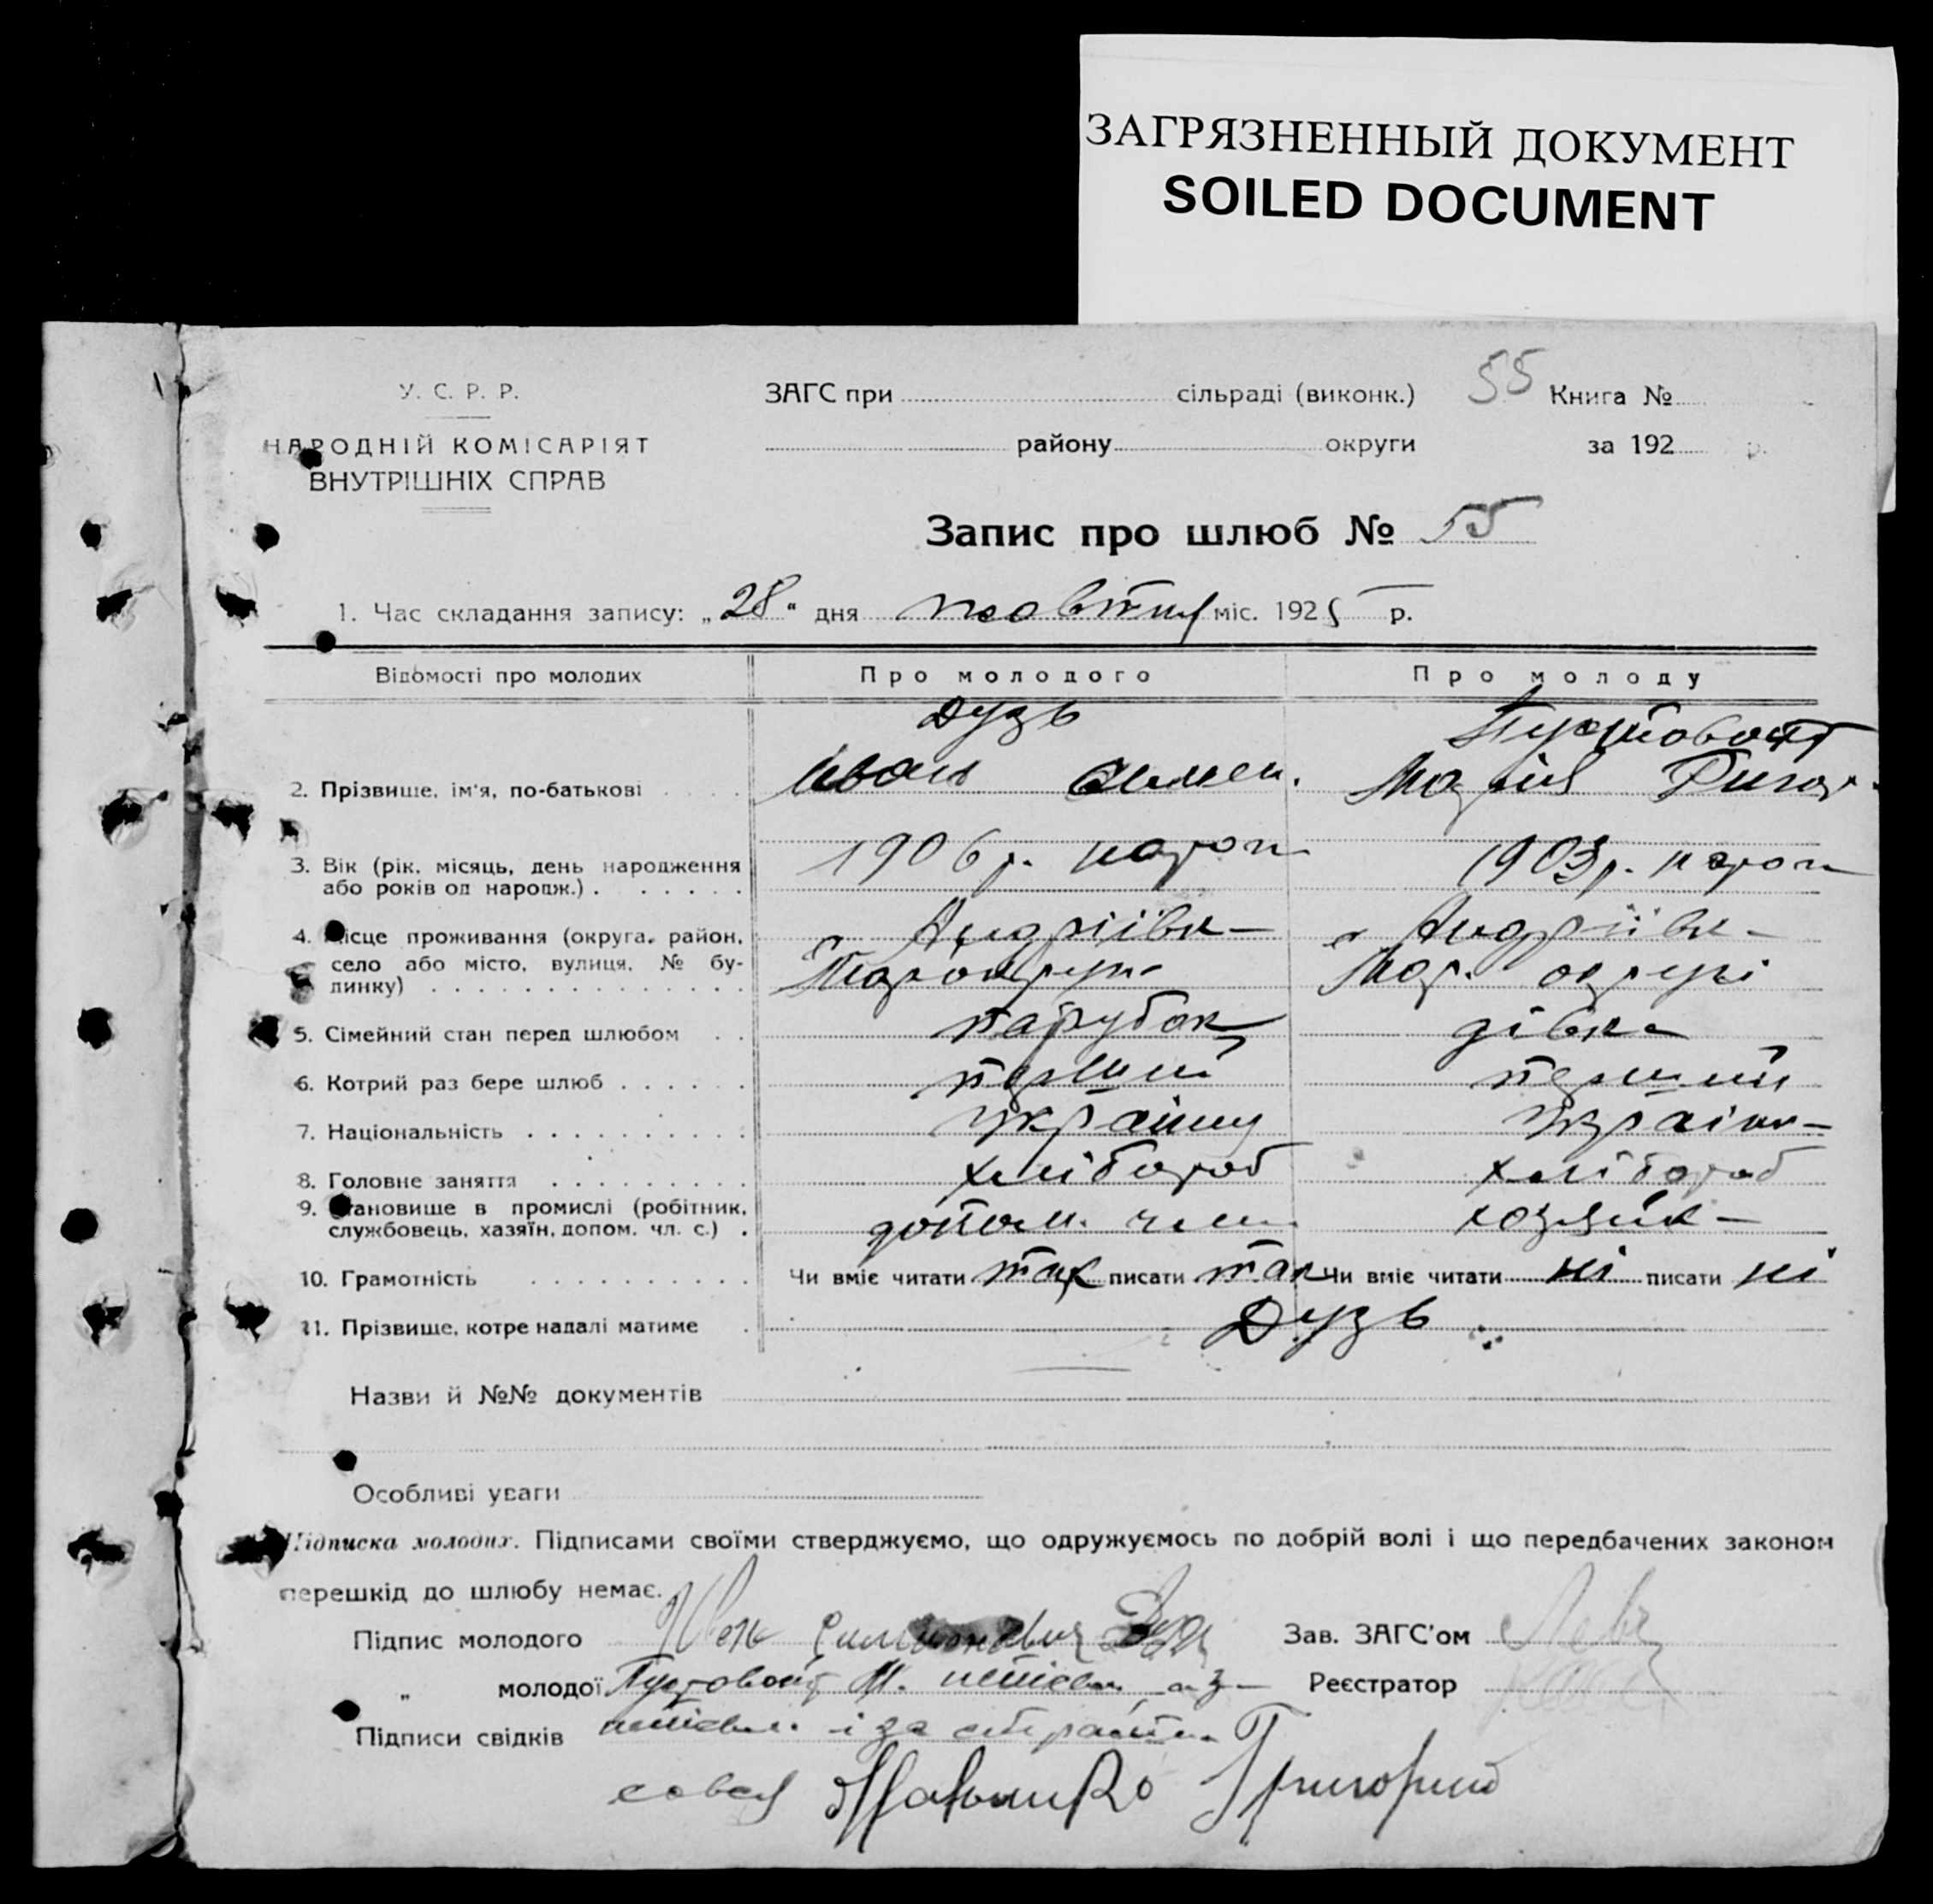 ЗАГРЯЗНЕННЫЙ ДОКУМЕНТ
SOILED DOCUMENT
У. С. Р. Р.
НАРОДНІЙ КОМІСАРІЯТ
ВНУТРІШНІХ СПРАВ
ЗАГС при сільраді (виконк.) 55 Книга №
району округи за 192 р.
Запис про шлюб № 55
1. Час складання запису: „28“ дня жовтня міс. 1925 р.
Відомості про молодих Про молодого Про молоду
Дузь
2. Прізвище, ім'я, по-батькові Іван Симен. Марія Григор.
3. Вік (рік, місяць, день народження або років од народж.) 1906 р. народж 1903 р. народж
4. Місце проживання (округа, район, село або місто, вулиця, № будинку) Андріївка Андріївка
Мар. округи
5. Сімейний стан перед шлюбом парубок дівка
6. Котрий раз бере шлюб перший перший
7. Національність українец українка
8. Головне заняття хлібороб хлібороб
9. Становище в промислі (робітник, службовець, хазяїн, допом. чл. с.) допом. член хозяйка
10. Грамотність Чи вміє читати так писати так Чи вміє читати ні писати ні
11. Прізвище, котре надалі матиме Дузь
Назви й №№ документів
Особливі уваги
Підписка молодих. Підписами своїми стверджуємо, що одружуємось по добрій волі і що передбачених законом
перешкід до шлюбу немає.
Підпис молодого Зав. ЗАГС'ом
„ молодої Пустовойт М. Реєстратор
Підписи свідків і за
Григорий